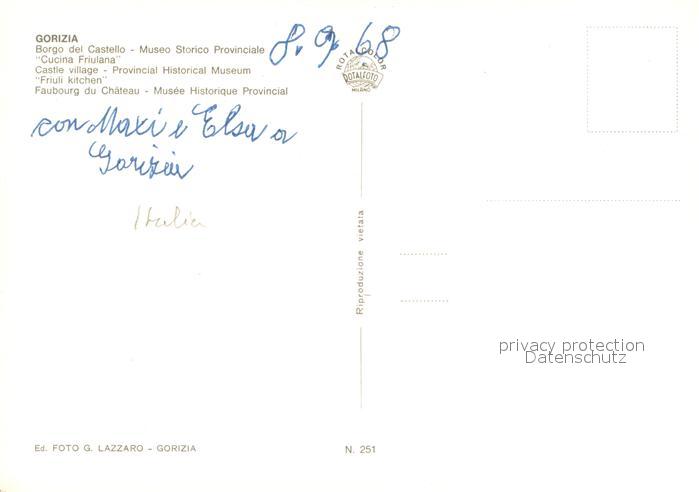 GORIZIA
Borgo del Castello - Museo Storico Provinciale
"Cucina Friulana"
Castle village - Provincial Historical Museum
"Friuli kitchen"
Faubourg du Château - Musée Historique Provincial
8. 9. 68
ROTALCOLOR
ROTALFOTO
MILANO
con Maxi e Elsa a
Gorizia
Italia
Riproduzione vietata
privacy protection
Datenschutz
Ed. FOTO G. LAZZARO - GORIZIA
N. 251